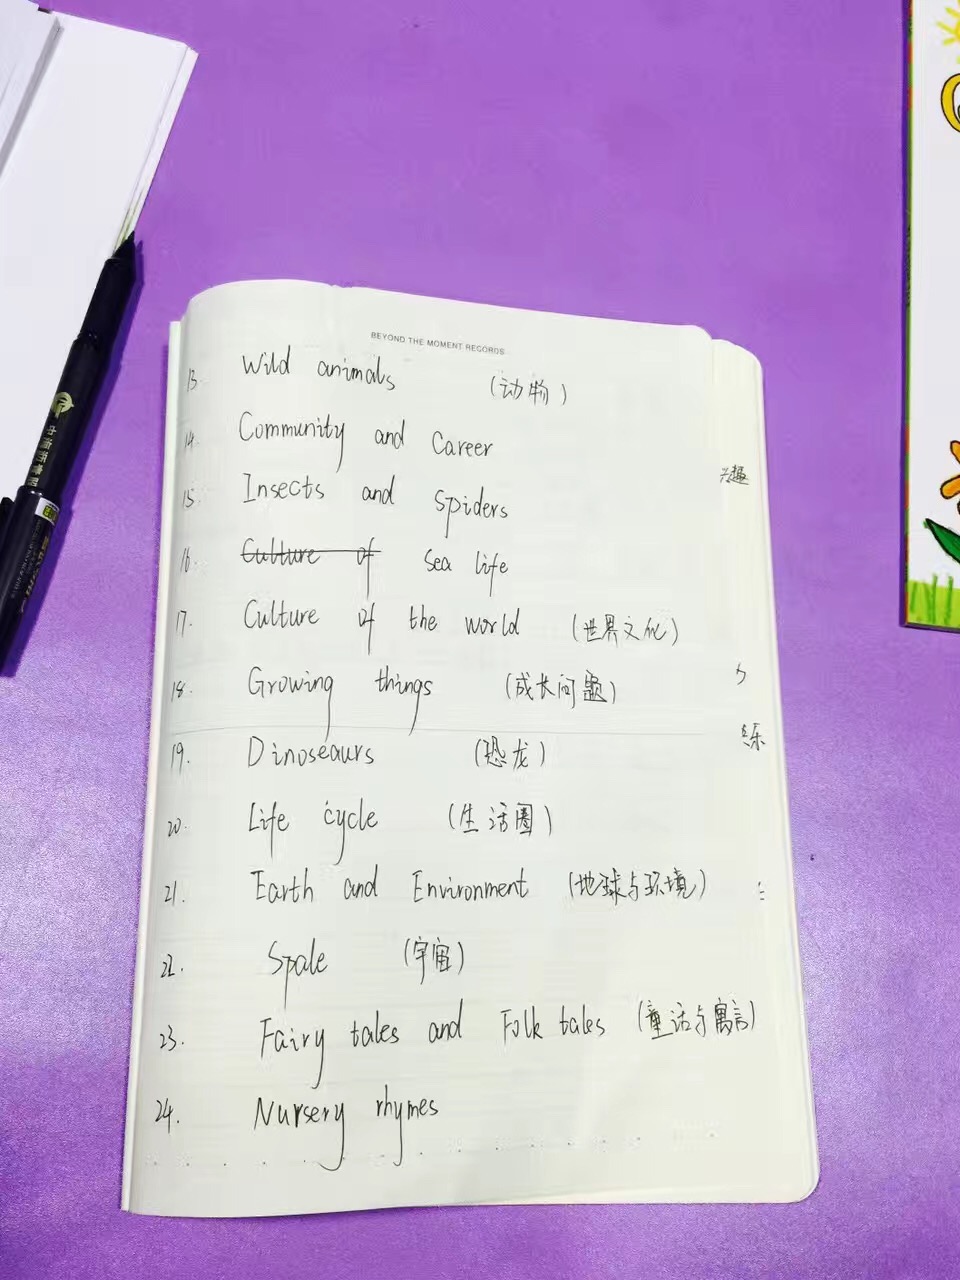 BEYOND THE MOMENT RECORDS
13. Wild animals (动物)
14. Community and Career
15. Insects and Spiders
兴趣
16. Culture of Sea life
17. Culture of the world (世界文化)
18. Growing things (成长问题)
19. Dinoseaurs (恐龙)
练
20. Life cycle (生活圈)
21. Earth and Environment (地球与环境)
22. Spale (宇宙)
23. Fairy tales and Folk tales (童话与寓言)
24. Nursery rhymes